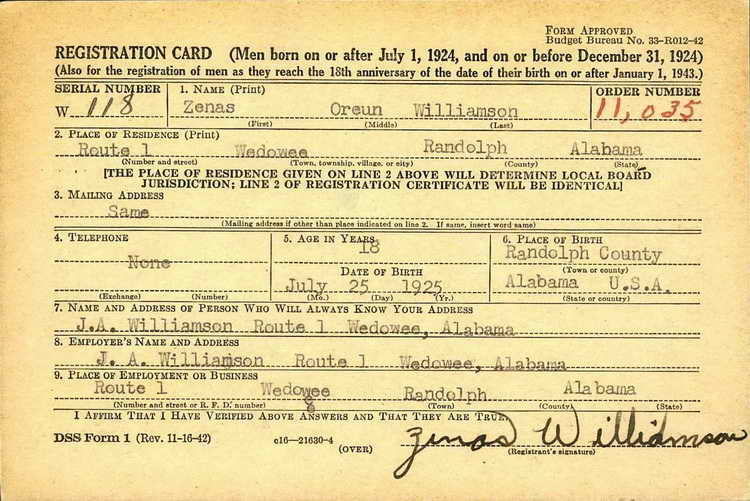 FORM APPROVED
Budget Bureau No. 33-R012-42
REGISTRATION CARD (Men born on or after July 1, 1924, and on or before December 31, 1924)
(Also for the registration of men as they reach the 18th anniversary of the date of their birth on or after January 1, 1943.)
SERIAL NUMBER 1. NAME (Print) ORDER NUMBER
W 118 Zenas Oreun Williamson 11,035
(First) (Middle) (Last)
2. PLACE OF RESIDENCE (Print)
Route 1 Wedowee Randolph Alabama
(Number and street) (Town, township, village, or city) (County) (State)
[THE PLACE OF RESIDENCE GIVEN ON LINE 2 ABOVE WILL DETERMINE LOCAL BOARD
JURISDICTION; LINE 2 OF REGISTRATION CERTIFICATE WILL BE IDENTICAL]
3. MAILING ADDRESS
Same
(Mailing address if other than place indicated on line 2. If same, insert word same)
4. TELEPHONE 5. AGE IN YEARS 6. PLACE OF BIRTH
None 18 Randolph County
DATE OF BIRTH (Town or county)
July 25 1925 Alabama U.S.A.
(Exchange) (Number) (Mo.) (Day) (Yr.) (State or country)
7. NAME AND ADDRESS OF PERSON WHO WILL ALWAYS KNOW YOUR ADDRESS
J.A. Williamson Route 1 Wedowee, Alabama
8. EMPLOYER'S NAME AND ADDRESS
J. A. Williamson Route 1 Wedowee, Alabama
9. PLACE OF EMPLOYMENT OR BUSINESS
Route 1 Wedowee Randolph Alabama
(Number and street or R. F. D. number) (Town) (County) (State)
I AFFIRM THAT I HAVE VERIFIED ABOVE ANSWERS AND THAT THEY ARE TRUE.
DSS Form 1 (Rev. 11-16-42) c16—21630-4 Zenas Williamson
(OVER) (Registrant's signature)